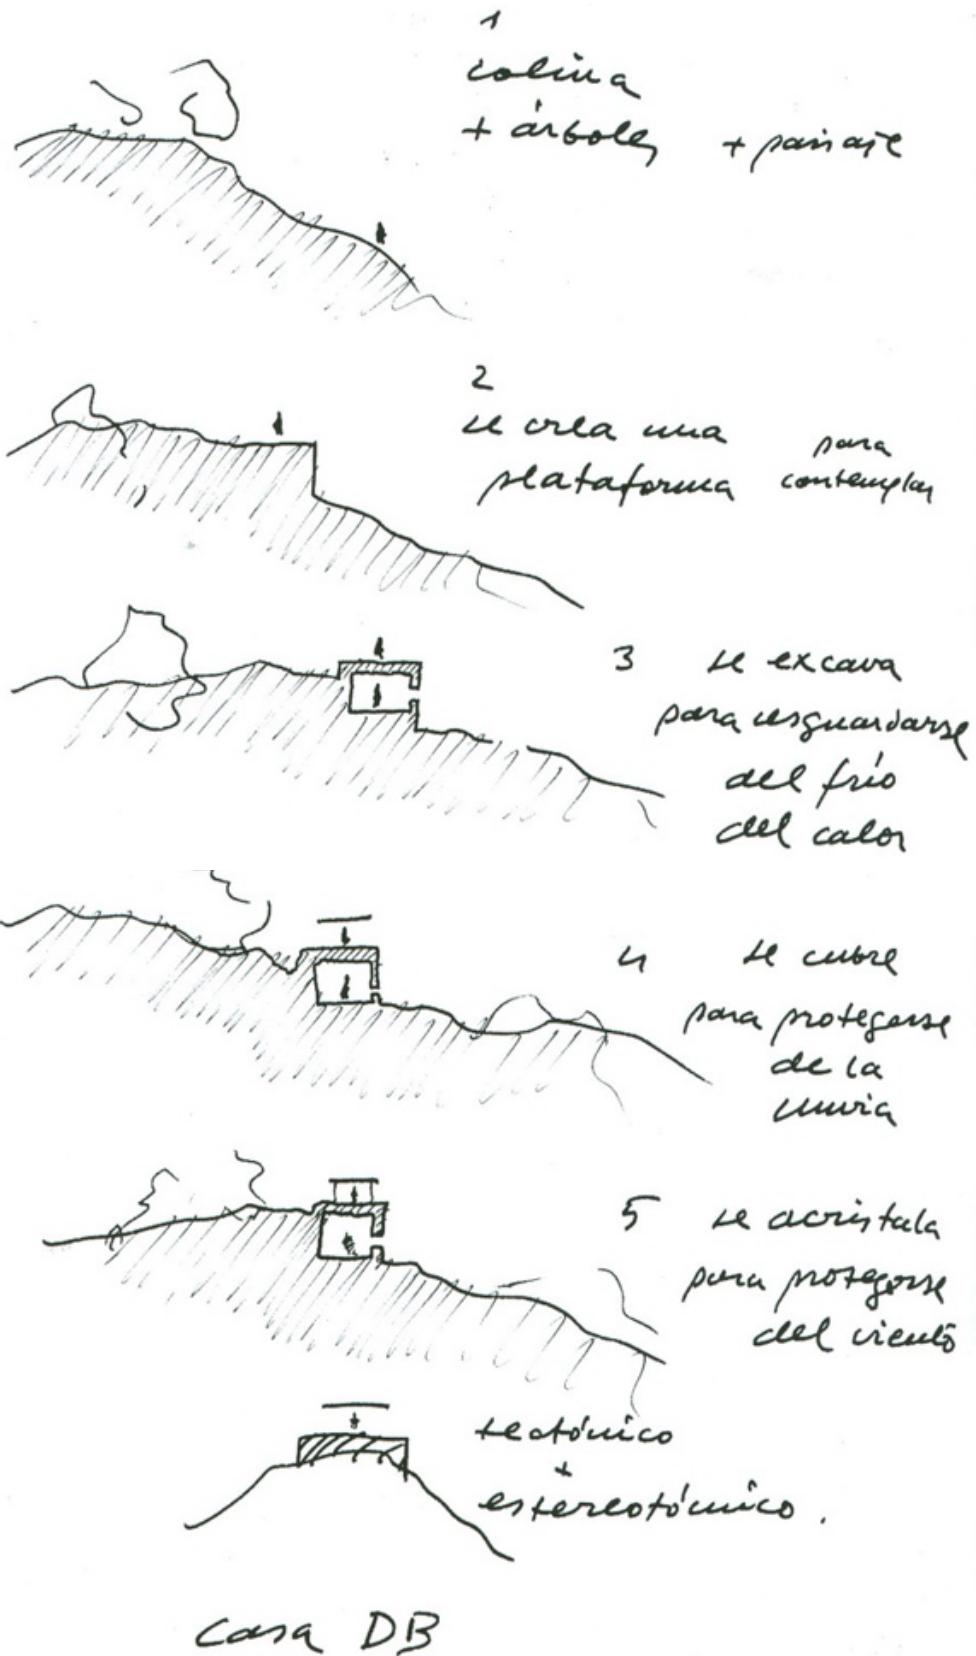 1
colina
+ árboles + paisaje
2
se crea una para
plataforma contemplar
3 se excava
para resguardarse
del frío
del calor
4 se cubre
para protegerse
de la
lluvia
5 se acristala
para protegerse
del viento
tectónico
+
estereotómico.
Casa DB